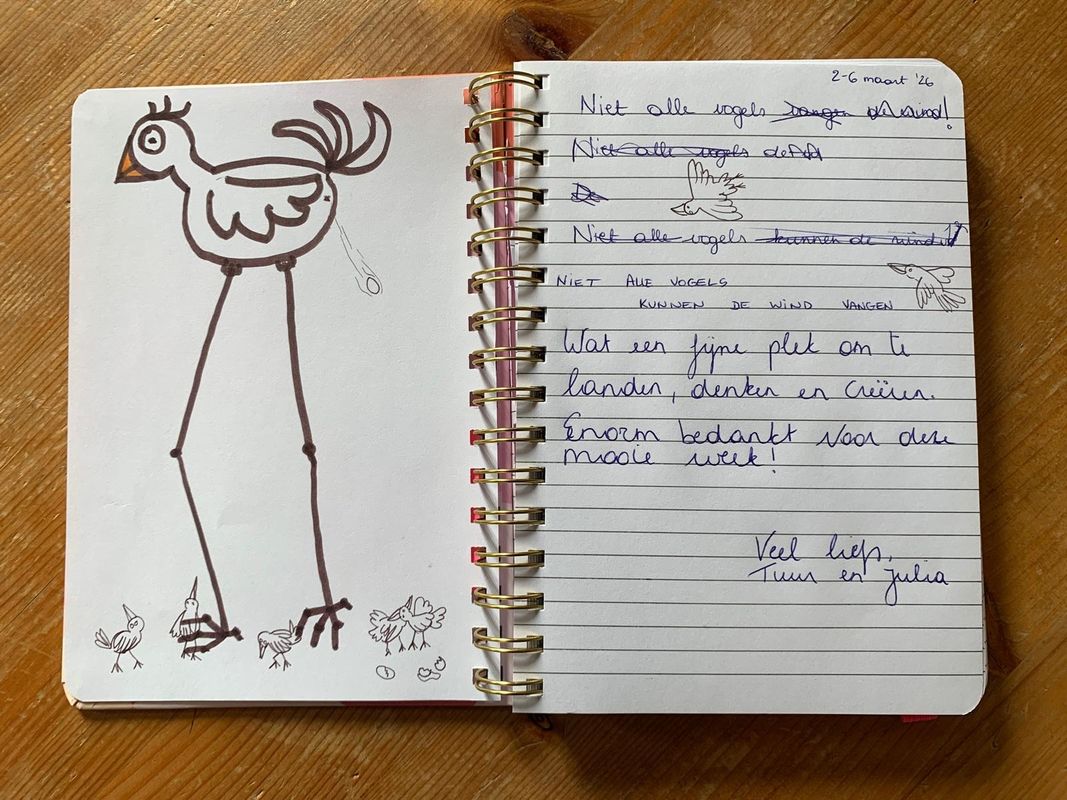 2-6 maart '26
Niet alle vogels vangen de wind!
Niet alle vogels
De
Niet alle vogels kunnen de wind
NIET ALLE VOGELS
KUNNEN DE WIND VANGEN
Wat een fijne plek om te
landen, denken en creëren.
Enorm bedankt voor deze
mooie week!
Veel liefs,
Tuur en Julia